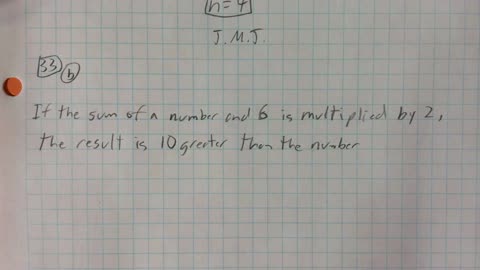 n=4
J.M.J.
33 b
If the sum of a number and 6 is multiplied by 2,
the result is 10 greater than the number